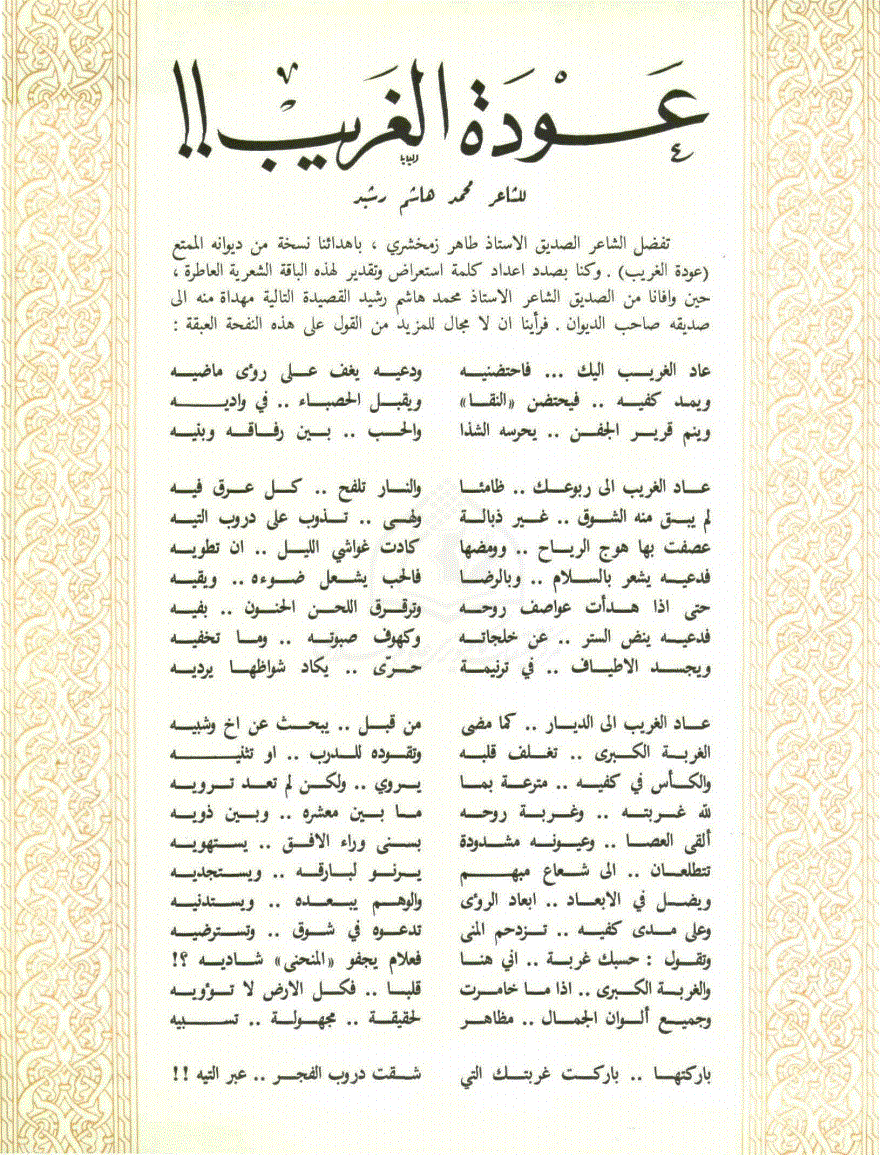 عودة الغريب !!
للشاعر محمد هاشم رشيد
تفضل الشاعر الصديق الاستاذ طاهر زمخشري ، باهدائنا نسخة من ديوانه الممتع
(عودة الغريب) . وكنا بصدد اعداد كلمة استعراض وتقدير لهذه الباقة الشعرية العاطرة ،
حين وافانا من الصديق الشاعر الاستاذ محمد هاشم رشيد القصيدة التالية مهداة منه الى
صديقه صاحب الديوان . فرأينا ان لا مجال للمزيد من القول على هذه النفحة العبقة :
عاد الغريب اليك ... فاحتضنيه ودعيه يغف على رؤى ماضيه
ويمد كفيه .. فيحتضن «النقا» ويقبل الحصباء .. في واديه
وينم قرير الجفن .. يحرسه الشذا والحب .. بين رفاقه وبنيه
عاد الغريب الى ربوعك .. ظامئا والنار تلفح .. كل عرق فيه
لم يبق منه الشوق .. غير ذبالة ولهى .. تذوب على دروب التيه
عصفت بها هوج الرياح .. وومضها كادت غواشي الليل .. ان تطويه
فدعيه يشعر بالسلام .. وبالرضا فالحب يشعل ضوءه .. ويقيه
حتى اذا هدأت عواصف روحه وترقرق اللحن الحنون .. بفيه
فدعيه ينض الستر .. عن خلجاته وكهوف صبوته .. وما تخفيه
ويجسد الاطياف .. في ترنيمة حرّى .. يكاد شواظها يرديه
عاد الغريب الى الديار .. كما مضى من قبل .. يبحث عن اخ وشبيه
الغربة الكبرى .. تغلف قلبه وتقوده للدرب .. او تثنيه
والكأس في كفيه .. مترعة بما يروي .. ولكن لم تعد ترويه
لله غربته .. وغربة روحه ما بين معشره .. وبين ذويه
ألقى العصا .. وعيونه مشدودة بسنى وراء الافق .. يستهويه
تتطلعان .. الى شعاع مبهم يرنو لبارقه .. ويستجديه
ويضل في الابعاد .. ابعاد الرؤى والوهم يبعده .. ويستدنيه
وعلى مدى كفيه .. تزدحم المنى تدعوه في شوق .. وتسترضيه
وتقول : حسبك غربة .. اني هنا فعلام يجفو «المنحنى» شاديه ؟!
والغربة الكبرى .. اذا ما خامرت قلبا .. فكل الارض لا تؤويه
وجميع ألوان الجمال .. مظاهر لحقيقة .. مجهولة .. تسبيه
باركتها .. باركت غربتك التي شقت دروب الفجر .. عبر التيه !!